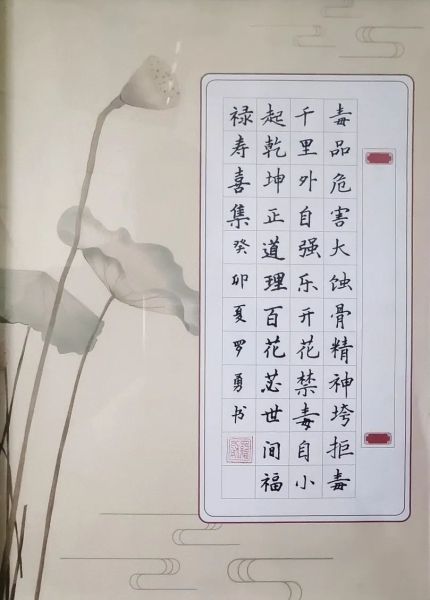 毒品危害大蚀骨精神垮拒毒
千里外自强乐开花禁毒自小
起乾坤正道理百花苾世间福
禄寿喜集癸卯夏罗勇书